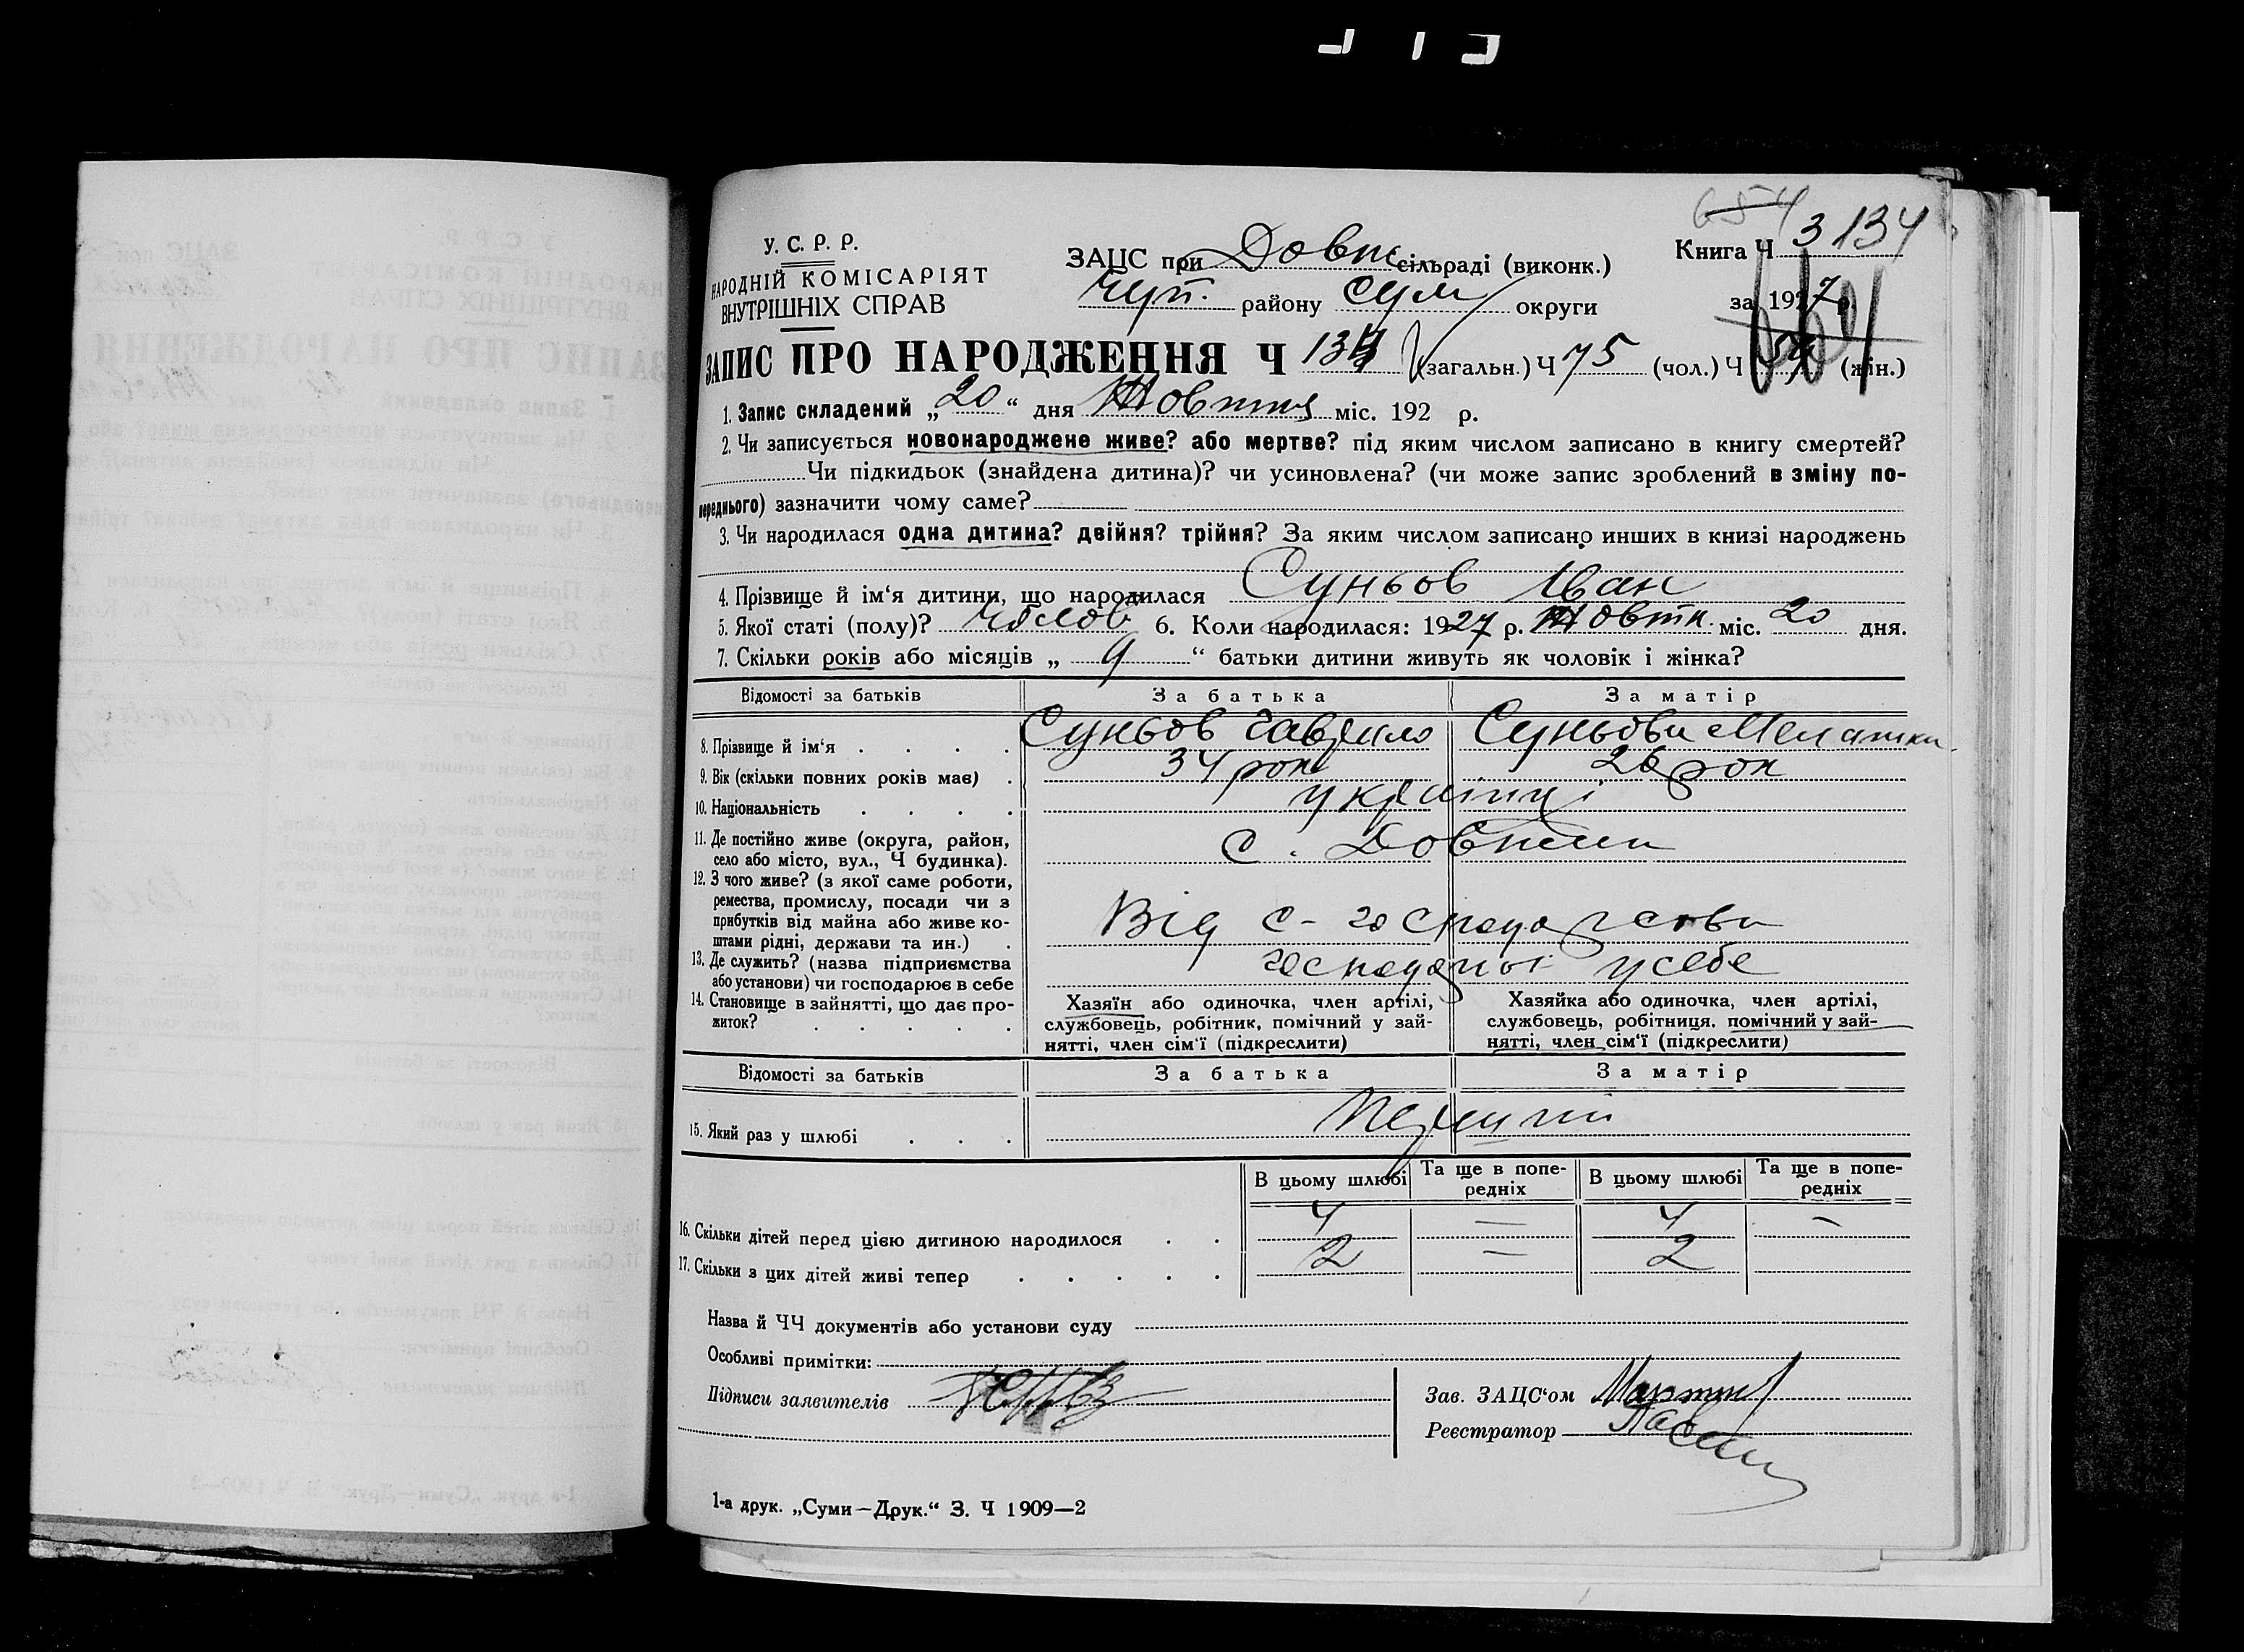 654
3 134
У. С. Р. Р.
НАРОДНІЙ КОМІСАРІЯТ
ВНУТРІШНІХ СПРАВ
ЗАЦС при Довж сільраді (виконк.)
Чуп. району Сум округи
Книга Ч
за 1927 р.
ЗАПИС ПРО НАРОДЖЕННЯ Ч 134 (загальн.) Ч 75 (чол.) Ч (жін.)
1. Запис складений „20“ дня Жовтня міс. 192 р.
2. Чи записується новонароджене живе? або мертве? під яким числом записано в книгу смертей?
Чи підкидьок (знайдена дитина)? чи усиновлена? (чи може запис зроблений в зміну по-
переднього) зазначити чому саме?
3. Чи народилася одна дитина? двійня? трійня? За яким числом записано инших в книзі народжень
4. Прізвище й ім‘я дитини, що народилася Суньов Іван
5. Якої статі (полу)? Чолов 6. Коли народилася: 1927 р. Жовтн. міс. 20 дня.
7. Скільки років або місяців „ 9 “ батьки дитини живуть як чоловік і жінка?
Відомості за батьків За батька За матір
8. Прізвище й ім‘я . . . . Суньов Гаврило Суньова Мелашка
9. Вік (скільки повних років має) . 34 рок 26 рок
10. Національність . . . . українці
11. Де постійно живе (округа, район,
село або місто, вул., Ч будинка). с.
12. З чого живе? (з якої саме роботи,
ремества, промислу, посади чи з
прибутків від майна або живе ко-
штами рідні, держави та ин.) . Від с-господарства
13. Де служить? (назва підприємства
або установи) чи господарює в себе у себе
14. Становище в зайнятті, що дає про-
житток? . . . . .
Хазяїн або одиночка, член артілі,
службовець, робітник, помічний у зай-
нятті, член сім‘ї (підкреслити)
Хазяйка або одиночка, член артілі,
службовець, робітниця, помічний у зай-
нятті, член сім‘ї (підкреслити)
Відомості за батьків За батька За матір
15. Який раз у шлюбі . . . Перший
В цьому шлюбі Та ще в попе-
редніх В цьому шлюбі Та ще в попе-
редніх
16. Скільки дітей перед цією дитиною народилося . . 4 — 4 —
17. Скільки з цих дітей живі тепер . . . . . 2 — 2
Назва й ЧЧ документів або установи суду
Особливі примітки:
Підписи заявителів
Зав. ЗАЦС‘ом
Реєстратор
1-а друк. „Суми—Друк.“ З. Ч 1909—2